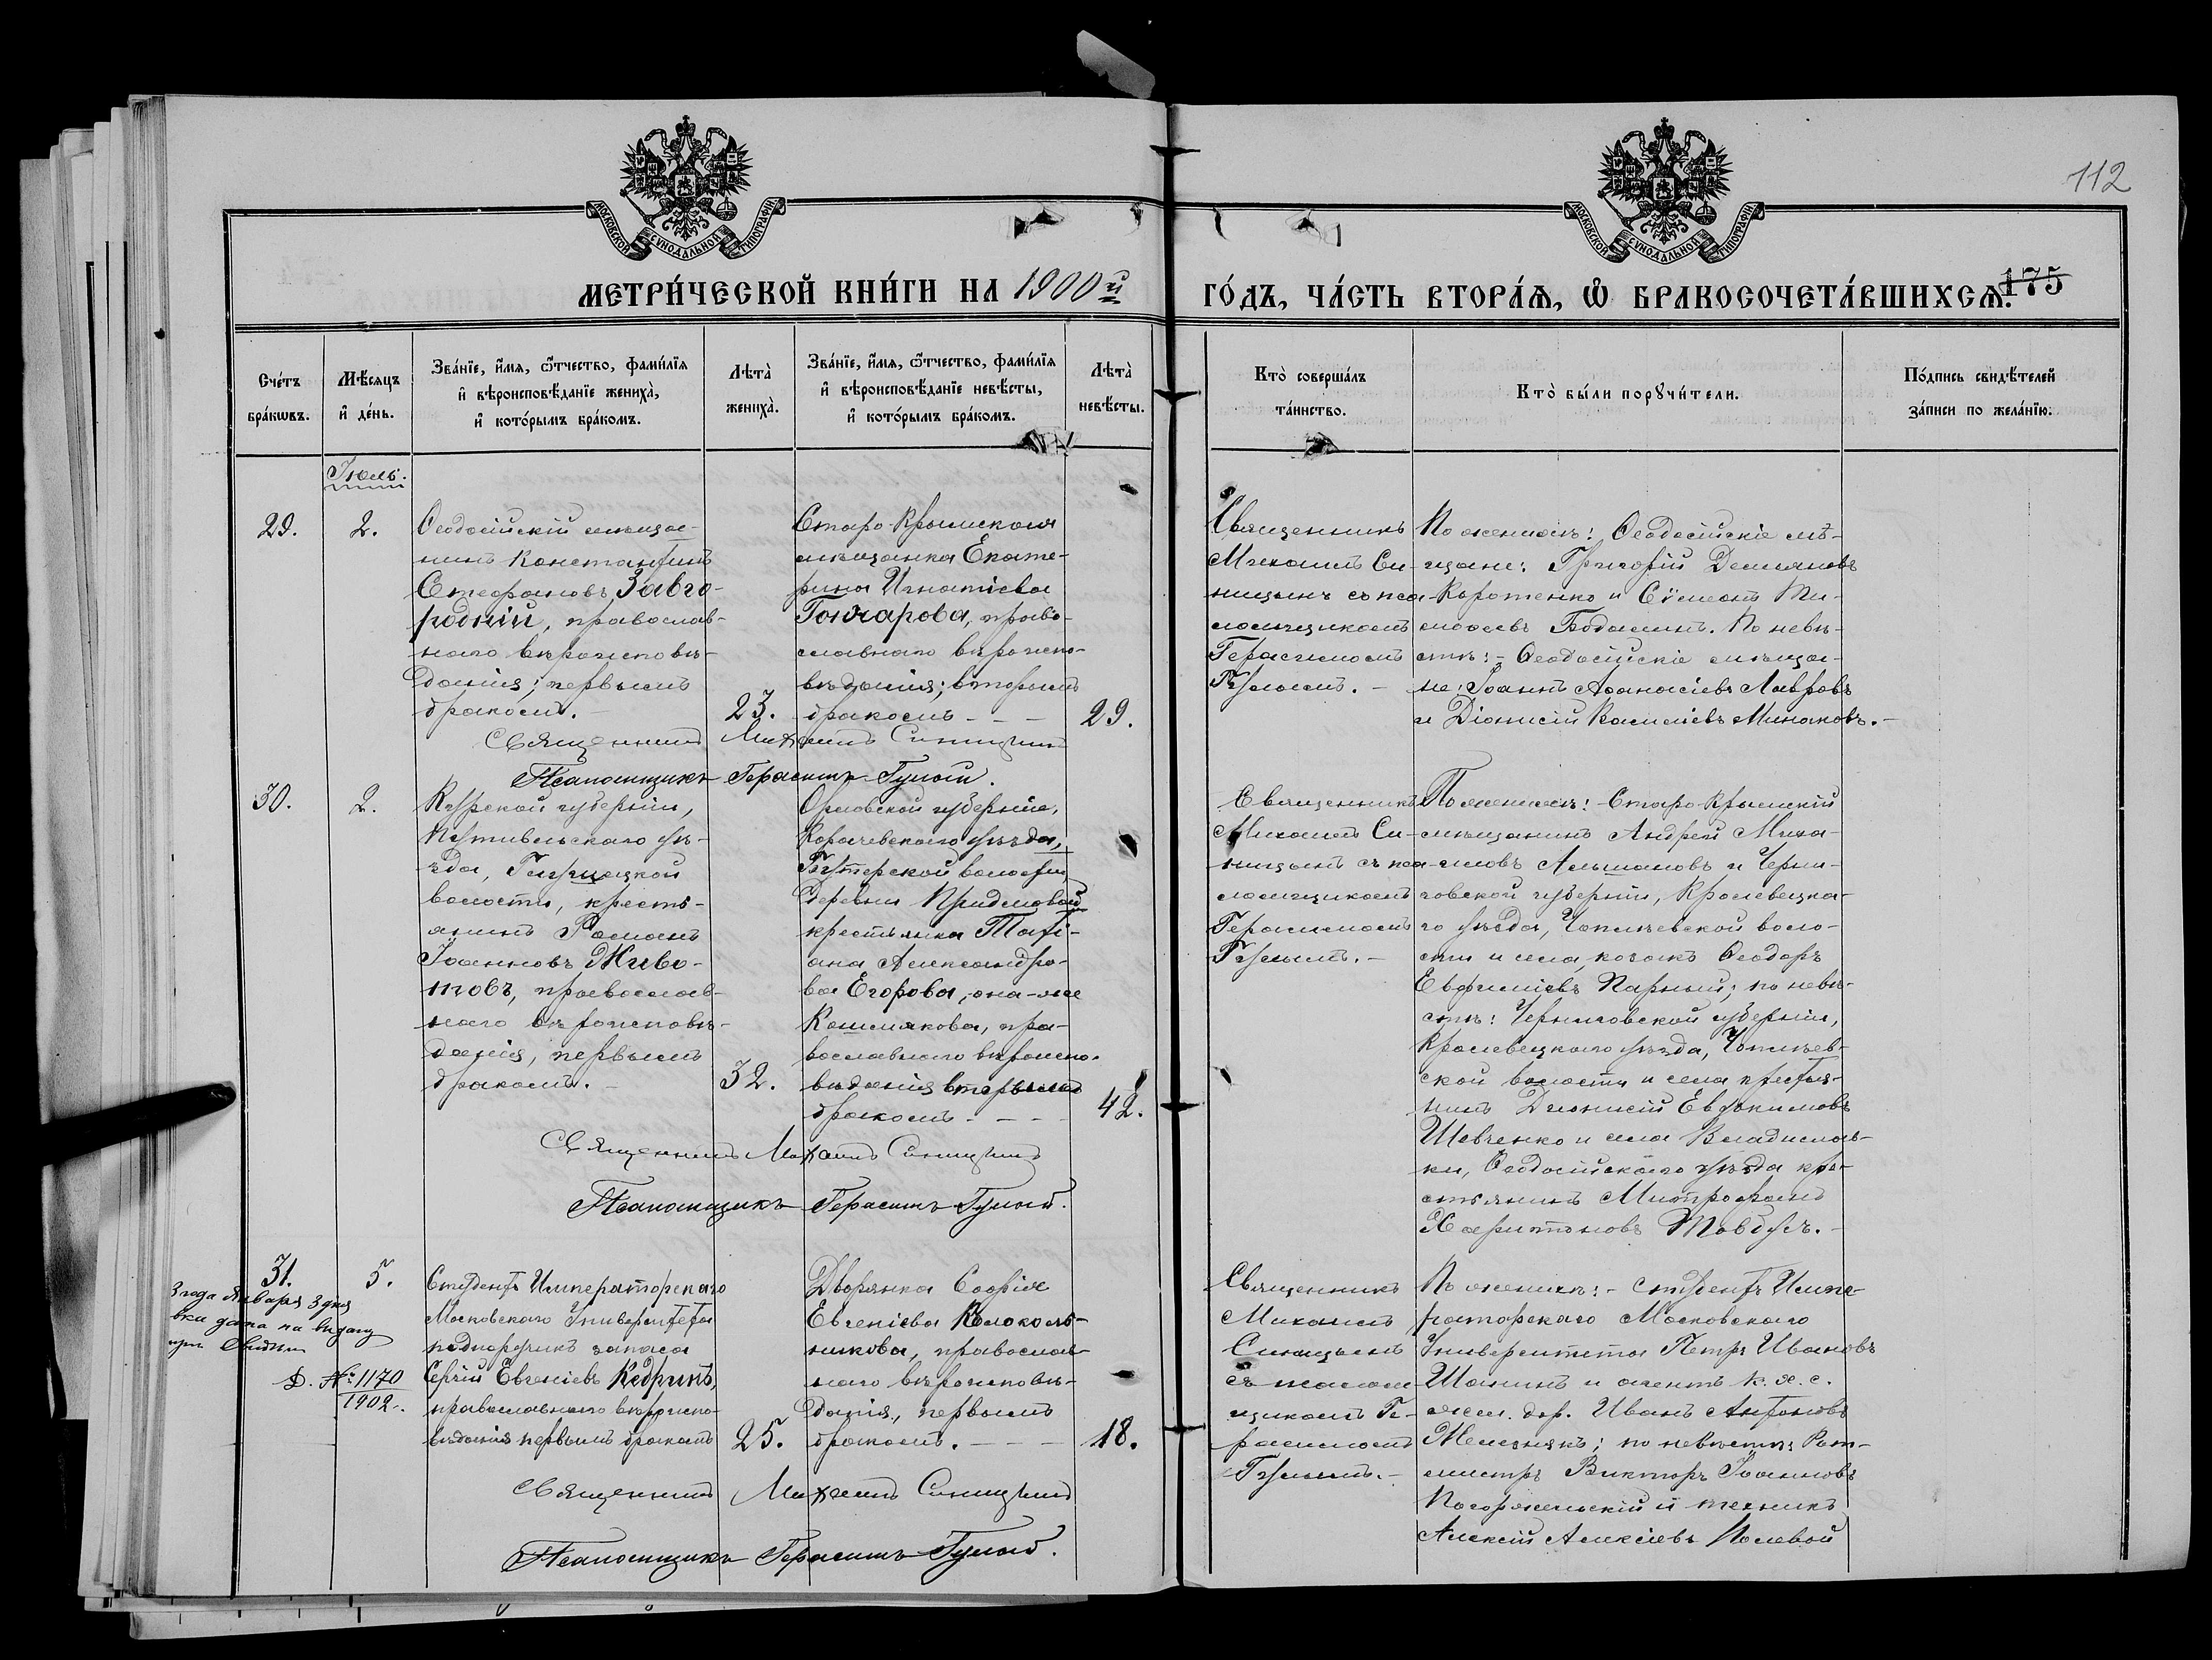 112
МОСКОВСКОЙ СѴНОДАЛЬНОЙ ТИПОГРАФІИ
МОСКОВСКОЙ СѴНОДАЛЬНОЙ ТИПОГРАФІИ
МЕТРИ́ЧЕСКОЙ КНИ́ГИ НА 1900й ГО́ДЪ, ЧА́СТЬ ВТОРА́Ѧ, Ѽ БРАКОСОЧЕТА́ВШИХСѦ.
175
Сче́тъ
бра́кѡвъ.
Мѣ́сяцъ
и҆ де́нь.
Зва́нїе, и҆́мѧ, ѻ҆́тчество, фамн́лїѧ
и҆ вѣроисповѣ́данїе жениха̀,
и҆ кото́рымъ бра́комъ.
Лѣта̀
жениха̀.
Зва́нїе, и҆́мѧ, ѻ҆́тчество, фами́лїѧ
и҆ вѣроисповѣ́данїе невѣ́сты,
и҆ кото́рымъ бра́комъ.
Лѣта̀
невѣ́сты.
Кто̀ соверша́лъ
та́инство.
Кто̀ бы́ли порꙋчи́тели.
По́дпись свидѣ́телей
за́писи по жела́нїю.
Іюль.
29.
2.
Ѳеодосійскій мѣща-
нинъ Константинъ
Стефановъ Завго-
родній, православ-
наго вѣроисповѣ-
данія; первымъ
бракомъ. -
23.
Старо-Крымская
мѣщанка Екате-
рина Игнатіева
Гончарова, право-
славнаго вѣроиспо-
вѣданія; вторымъ
бракомъ - - -
29.
Священникъ
Михаилъ Си-
ницынъ съ пса-
ломщикомъ
Герасимомъ
Гулымъ. -
По женихѣ: Ѳеодосійскіе мѣ-
щане: Григорій Демьяновъ
Коротенко и Сѵмеонъ Ти-
моѳеевъ Бодасинъ. По невѣ-
стѣ: - Ѳеодосійскіе мѣща-
не: Іоаннъ Аѳанасіевъ Лавровъ
и Діонисій Василіевъ Минаковъ. -
Священникъ Михаилъ Синицынъ
Псаломщикъ Герасимъ Гулый.
30.
2.
Курской губерніи,
Путивльскаго уѣ-
зда,
волости, кресть-
янинъ Романъ
Іоанновъ Живо-
товъ, православ-
наго вѣроисповѣ-
данія, первымъ
бракомъ. -
32.
Орловской губерніи,
Карачевскаго уѣзда,
Бутерской волости,
деревни Придиловой
крестьянка Тати-
ана Александро-
ва Егорова, она-же
Кошлякова, пра-
вославнаго вѣроиспо-
вѣданія вторымъ
бракомъ - - -
42.
Священникъ
Михаилъ Си-
ницынъ съ пса-
ломщикомъ
Герасимомъ
Гулымъ. -
По женихѣ: Старо-Крымскій
мѣщанинъ Андрей Миха-
иловъ Алышановъ и Черни-
говской губерніи, Кролевецка-
го уѣзда, Чоплѣевской воло-
сти и села, козакъ Ѳеодоръ
Евфиміевъ Парный; по невѣ-
стѣ: Черниговской губерніи,
Кролевецкаго уѣзда, Чоплѣев-
ской волости и села крестья-
нинъ Діонисій Евфкимовъ
Шевченко и села Владиславов-
ки, Ѳеодосійскаго уѣзда кре-
стьянинъ Митрофанъ
Харитоновъ Товбусъ. -
Священникъ Михаилъ Синицынъ
Псаломщикъ Герасимъ Гулый.
31.
5.
3 года Января 3 дня
дана на выдачу
Д. № 1170
1902.
Студентъ Императорскаго
Московскаго Университета
подпоручикъ запаса
Сергій Евгеніевъ Кедринъ,
православнаго вѣроиспо-
вѣданія первымъ бракомъ
25.
Дворянка Софія
Евгеніева Колоколь-
никова, православ-
наго вѣроисповѣ-
данія, первымъ
бракомъ. - - -
18.
Священникъ
Михаилъ
Синицынъ
съ псалом-
щикомъ Ге-
расимомъ
Гулымъ. -
По женихѣ: - студентъ Импе-
раторскаго Московскаго
Университета Петръ Ивановъ
Шанинъ и агентъ К. Х. С.
жел. дор. Иванъ Антоновъ
Мелезнякъ; по невѣстѣ: Рот-
мистръ Викторъ Іоанновъ
Погоржельскій и техникъ
Алексій Алексіевъ Полевой
Священникъ Михаилъ Синицынъ
Псаломщикъ Герасимъ Гулый.